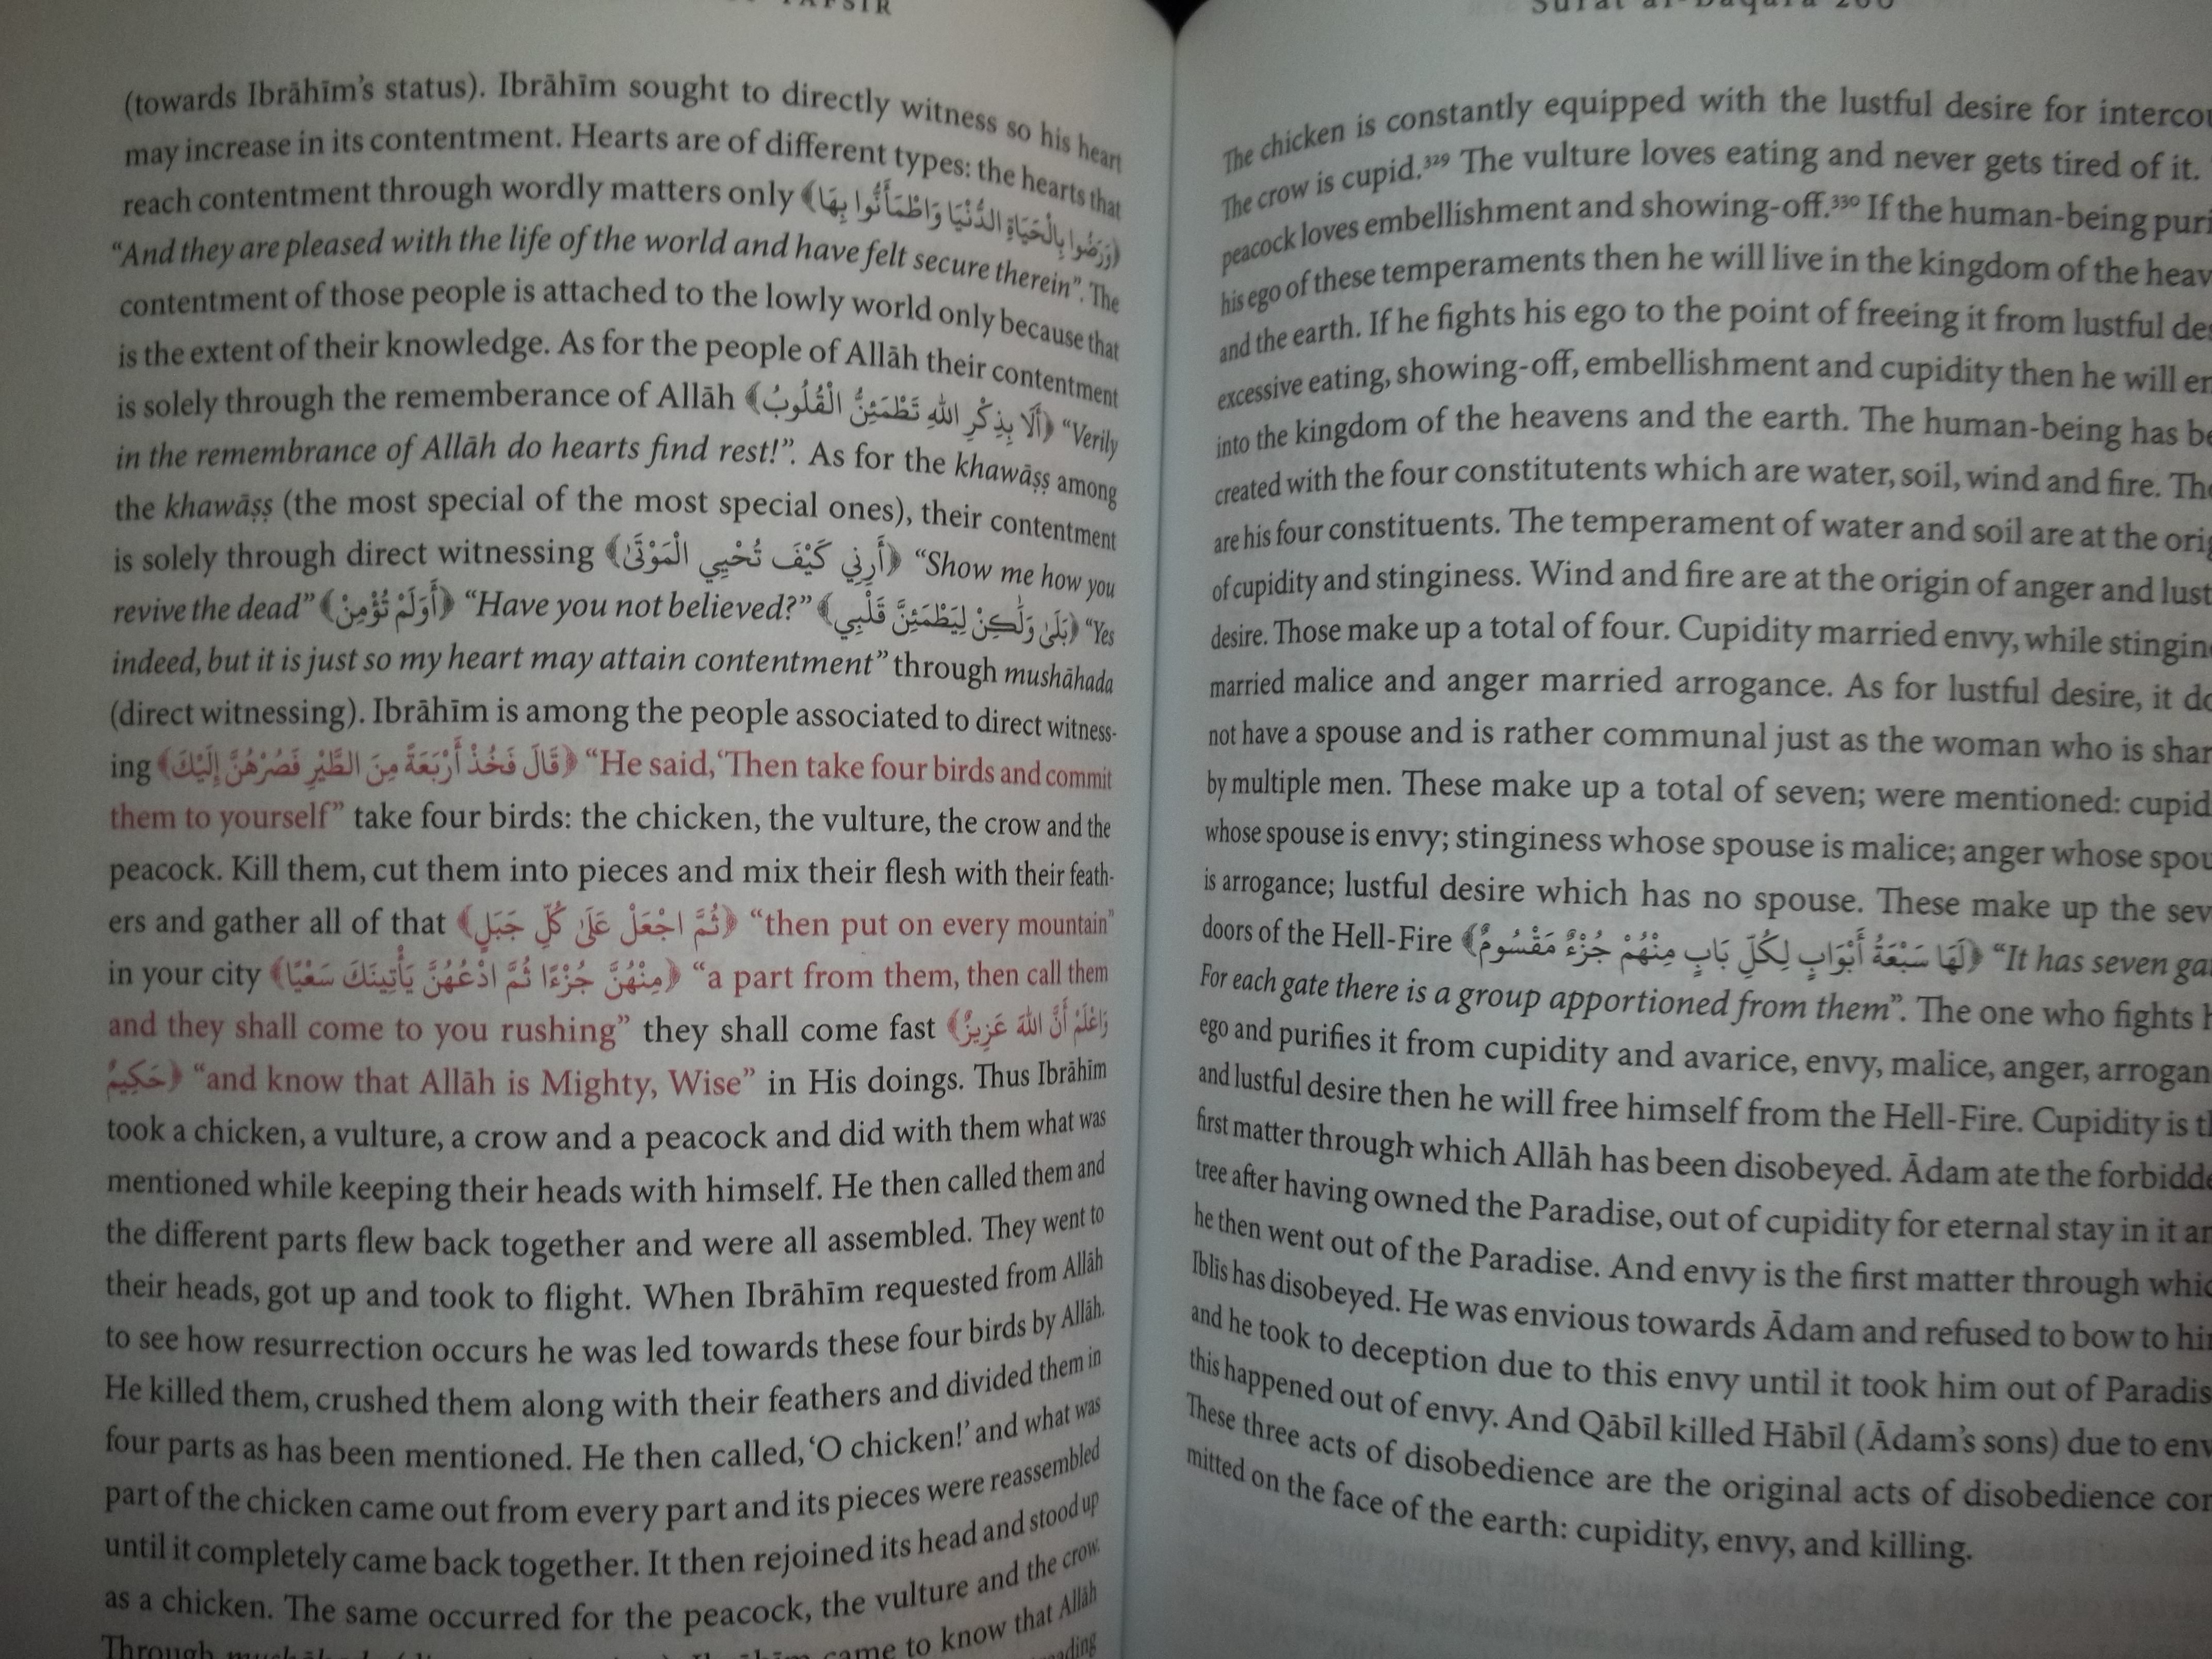 TAFSIR
(towards Ibrāhīm's status). Ibrāhīm sought to directly witness so his heart
may increase in its contentment. Hearts are of different types: the hearts that
reach contentment through wordly matters only ﴿وَرَضُوا بِالْحَيَاةِ الدُّنْيَا وَاطْمَأَنُّوا بِهَا﴾
“And they are pleased with the life of the world and have felt secure therein”. The
contentment of those people is attached to the lowly world only because that
is the extent of their knowledge. As for the people of Allāh their contentment
is solely through the rememberance of Allāh ﴿أَلَا بِذِكْرِ اللهِ تَطْمَئِنُّ الْقُلُوبُ﴾ “Verily
in the remembrance of Allāh do hearts find rest!”. As for the khawāṣṣ among
the khawāṣṣ (the most special of the most special ones), their contentment
is solely through direct witnessing ﴿أَرِنِي كَيْفَ تُحْيِي الْمَوْتَىٰ﴾ “Show me how you
revive the dead” ﴿أَوَلَمْ تُؤْمِنْ﴾ “Have you not believed?” ﴿بَلَىٰ وَلَٰكِنْ لِيَطْمَئِنَّ قَلْبِي﴾ “Yes
indeed, but it is just so my heart may attain contentment” through mushāhada
(direct witnessing). Ibrāhīm is among the people associated to direct witness-
ing ﴿قَالَ فَخُذْ أَرْبَعَةً مِنَ الطَّيْرِ فَصُرْهُنَّ إِلَيْكَ﴾ “He said, ‘Then take four birds and commit
them to yourself” take four birds: the chicken, the vulture, the crow and the
peacock. Kill them, cut them into pieces and mix their flesh with their feath-
ers and gather all of that ﴿ثُمَّ اجْعَلْ عَلَىٰ كُلِّ جَبَلٍ﴾ “then put on every mountain”
in your city ﴿مِنْهُنَّ جُزْءًا ثُمَّ ادْعُهُنَّ يَأْتِينَكَ سَعْيًا﴾ “a part from them, then call them
and they shall come to you rushing” they shall come fast ﴿وَاعْلَمْ أَنَّ اللهَ عَزِيزٌ
حَكِيمٌ﴾ “and know that Allāh is Mighty, Wise” in His doings. Thus Ibrāhīm
took a chicken, a vulture, a crow and a peacock and did with them what was
mentioned while keeping their heads with himself. He then called them and
the different parts flew back together and were all assembled. They went to
their heads, got up and took to flight. When Ibrāhīm requested from Allāh
to see how resurrection occurs he was led towards these four birds by Allāh.
He killed them, crushed them along with their feathers and divided them in
four parts as has been mentioned. He then called, ‘O chicken!’ and what was
part of the chicken came out from every part and its pieces were reassembled
until it completely came back together. It then rejoined its head and stood up
as a chicken. The same occurred for the peacock, the vulture and the crow.
Through came to know that Allāh
Surat al-Baqara 260
The chicken is constantly equipped with the lustful desire for
The crow is cupid.³²⁹ The vulture loves eating and never gets tired of it.
peacock loves embellishment and showing-off.³³⁰ If the human-being
his ego of these temperaments then he will live in the kingdom of the
and the earth. If he fights his ego to the point of freeing it from lustful
excessive eating, showing-off, embellishment and cupidity then he will
into the kingdom of the heavens and the earth. The human-being has
created with the four constitutents which are water, soil, wind and fire.
are his four constituents. The temperament of water and soil are at the
of cupidity and stinginess. Wind and fire are at the origin of anger and
desire. Those make up a total of four. Cupidity married envy, while
married malice and anger married arrogance. As for lustful desire, it
not have a spouse and is rather communal just as the woman who is
by multiple men. These make up a total of seven; were mentioned:
whose spouse is envy; stinginess whose spouse is malice; anger whose
is arrogance; lustful desire which has no spouse. These make up the
doors of the Hell-Fire ﴿لَهَا سَبْعَةُ أَبْوَابٍ لِكُلِّ بَابٍ مِنْهُمْ جُزْءٌ مَقْسُومٌ﴾ “It has seven
For each gate there is a group apportioned from them”. The one who fights
ego and purifies it from cupidity and avarice, envy, malice, anger,
and lustful desire then he will free himself from the Hell-Fire. Cupidity is
first matter through which Allāh has been disobeyed. Ādam ate the
tree after having owned the Paradise, out of cupidity for eternal stay in it
he then went out of the Paradise. And envy is the first matter through
Iblis has disobeyed. He was envious towards Ādam and refused to bow to
and he took to deception due to this envy until it took him out of
this happened out of envy. And Qābīl killed Hābīl (Ādam's sons) due to
These three acts of disobedience are the original acts of disobedience
mitted on the face of the earth: cupidity, envy, and killing.